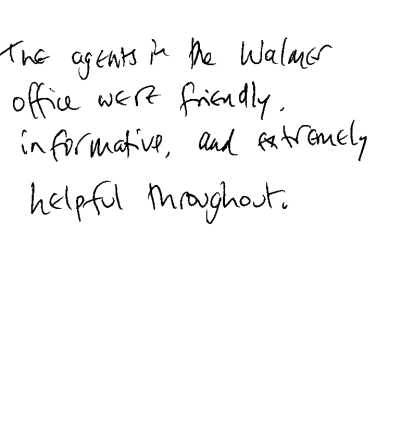 The agents in the Walmer
office were friendly,
informative, and extremely
helpful throughout.